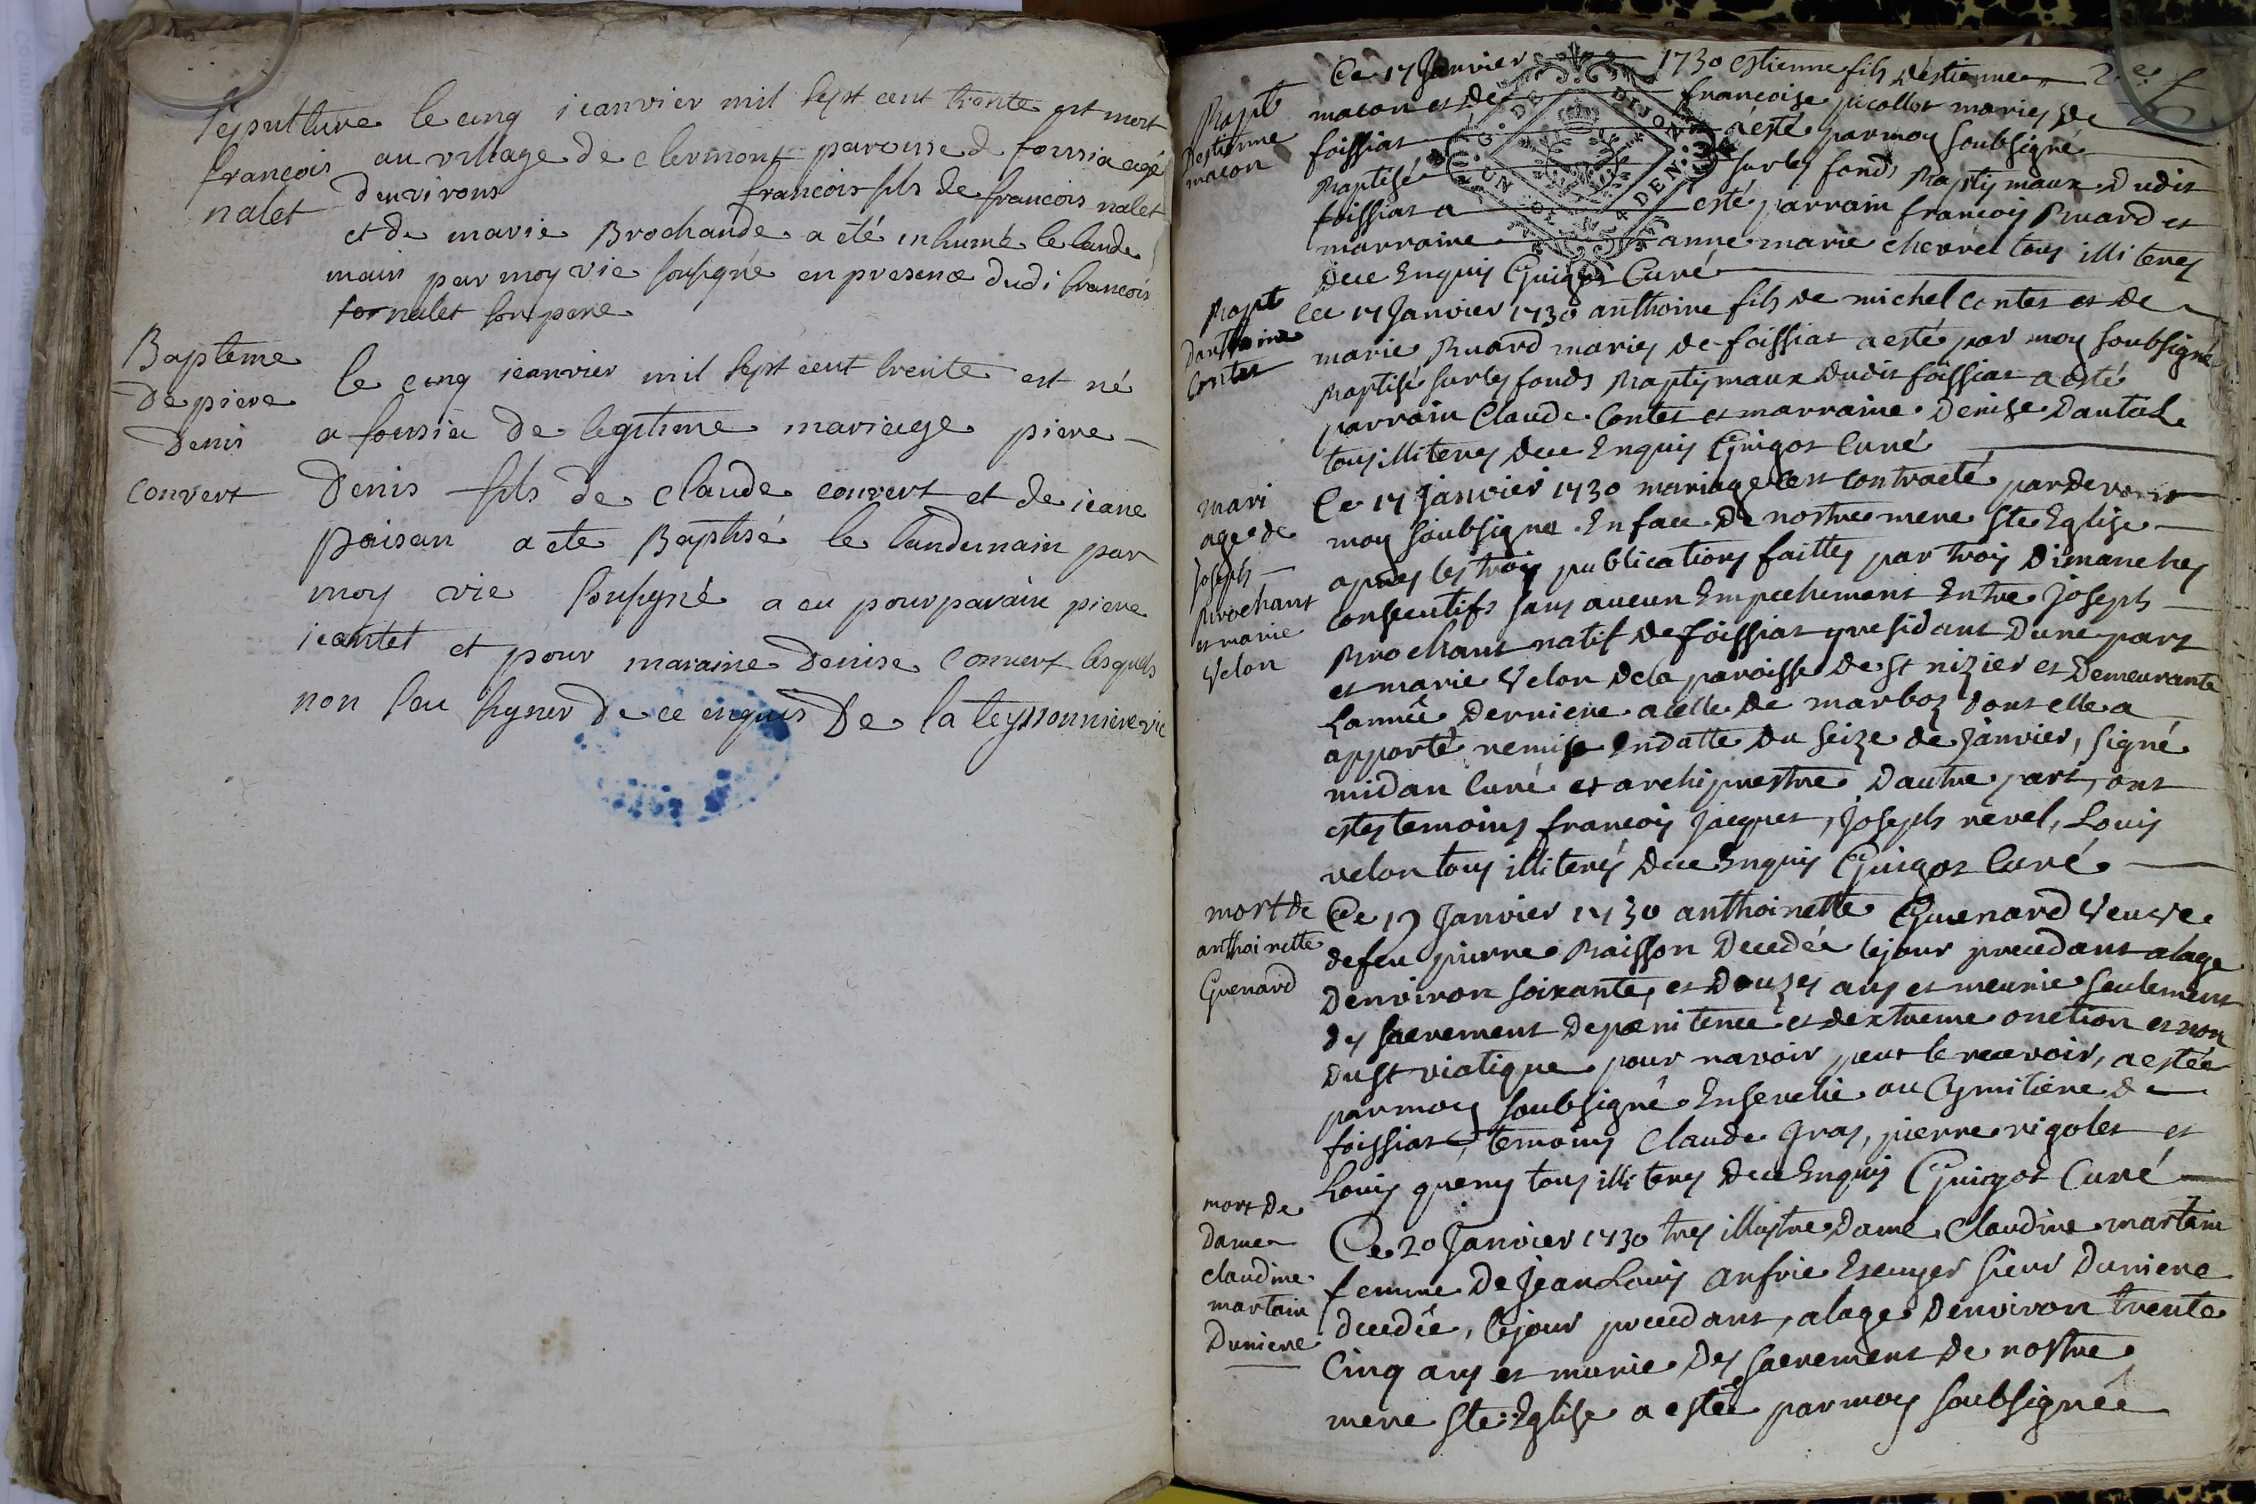 Sepulture
francois
nalet
le cinq ieanvier mil sept cent trente est mort
au village de clermont paroisse de foissia agé
denvirons francois fils de francois nalet
et de marie Brochande a été inhumé le lande
main par moy vic sousigné en presence dudi francois
nalet son pere
Bapteme
De piere
Denis
convert
le cinq ieanvier mil sept cent trente est né
a foissia De legitime mariage piere
Denis fils de claude convert et de ieane
paisan a ete Baptisé le landemain par
moy vic sousigné a eu pour parain piere
ieantet et pour maraine Denise convert lesquels
non seu signer De ce enquis De la teyssonniere vic
Bapt
Destienne
macon
Ce 17 Janvier 1730 estienne fils destienne
macon et de francoise picollet mariez de
foissiat a esté par moy soubsigné
Baptisé sur les fonds Baptismaux Dudit
foissiat a esté parrain francois Buard et
marraine anne marie chevrel tous illiteres
Dece Enquis Guigot Curé
UN DEN.
G. DE DIJON
Bapt
Danthoine
Contet
Ce 17 Janvier 1730 anthoine fils de michel contet et de
marie Buard mariez de foissiat a esté par moy soubsigné
Baptisé sur les fonds Baptismaux Dudit foissiat a esté
parrain Claude Contet et marraine Denise Dautel
tous illiteres Dece Enquis Guigot Curé
mari
age de
Joseph
Brochant
et marie
Velon
Ce 17 Janvier 1730 mariage cest contracté par Devant
moy soubsigné En face De nostre mere Ste Eglise
apres les trois publications faittes par trois Dimanches
consecutifs sans aucun Empechement Entre Joseph
Brochant natif de foissiat y residant Dune part
et marie Velon de la paroisse de St nizier et Demeurante
Lannée Derniere a celle De marboz Dont elle a
apporté remise En datte Du seize de Janvier, signé
midan Curé et archiprestre Dautre part, ont
estez temoins francois Jacquet, Joseph revel, Louis
velon tous illiterés Dece Enquis Guigot Curé
mort de
anthoinette
Guenard
Ce 19 Janvier 1730 anthoinette Guenard Veuve
de feu pierre Buisson Decedée le jour precedant a lage
Denviron soixante, et Douzes ans et meunie seulement
des sacrement De poenitence et dextreme onction et non
Du St viatique pour navoir peut le recevoir, a estée
par moy soubsigné Ensevelie au Cymitiere de
foissiat temoins Claude Gras, pierre rigolet et
Louis queny tous illiteres Dece Enquis Guigot Curé
mort De
Dame
claudine
martain
Duniere
Ce 20 Janvier 1730 tres illustre Dame Claudine martain
femme De Jean Louis anfrie Escuyer sieur Duniere
decedée, le jour precedant, a lage Denviron trente
Cinq ans et munie Des sacrement De nostre
mere Ste Eglise a estée par moy soubsignée